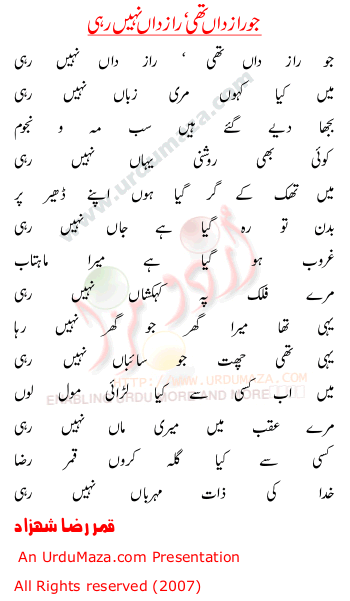 جو رازداں تھی، رازداں نہیں رہی
جو راز داں تھی ، راز داں نہیں رہی
میں کیا کہوں مری زباں نہیں رہی
بجھا دیے گئے ہیں سب مہ و نجوم
کوئی بھی روشنی یہاں نہیں رہی
میں تھک کے گر گیا ہوں اپنے ڈھیر پر
بدن تو رہ گیا ہے جاں نہیں رہی
غروب ہو گیا ہے میرا ماہتاب
مرے فلک پہ کہکشاں نہیں رہی
یہی تھا میرا گھر جو گھر نہیں رہا
یہی تھی چھت جو سائباں نہیں رہی
میں اب کسی سے کیا لڑائی مول لوں
مرے عقب میں میری ماں نہیں رہی
کسی سے کیا گلہ کروں قمر رضا
خدا کی ذات مہرباں نہیں رہی
قمر رضا شہزاد
An UrduMaza.com Presentation
All Rights reserved (2007)
www.urdumaza.com
اردو مزا
WWW.URDUMAZA.COM
ENABLING URDU MORE AND MORE